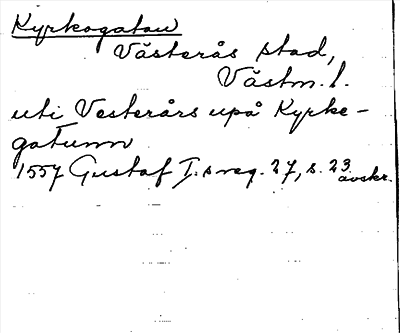 Kyrkogatan
Västerås stad,
Västm. l.
uti Vesterårs upå Kyrke-
gatunn
1557 Gustaf I.s reg. 27, s. 23
avskr.